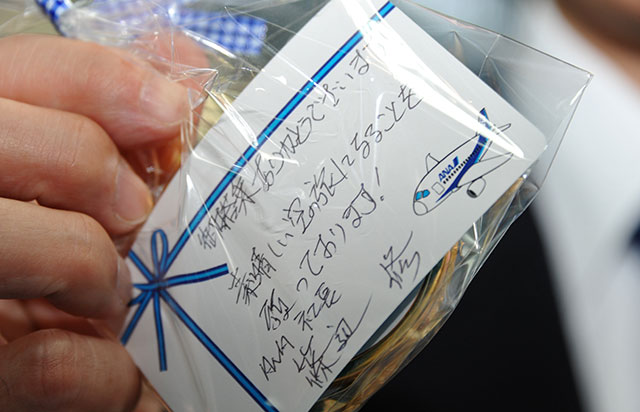 御搭乗ありがとうございます
素晴しい空の旅になることを
願っております!
ANA 社長
篠辺 修
ANA